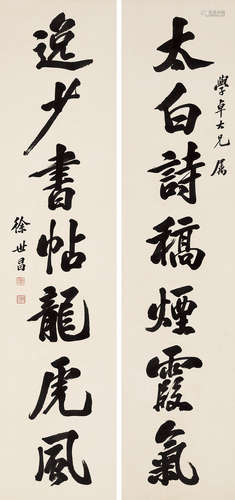 太白詩稿煙霞氣
學卓大兄屬
逸少書帖龍虎風
徐世昌